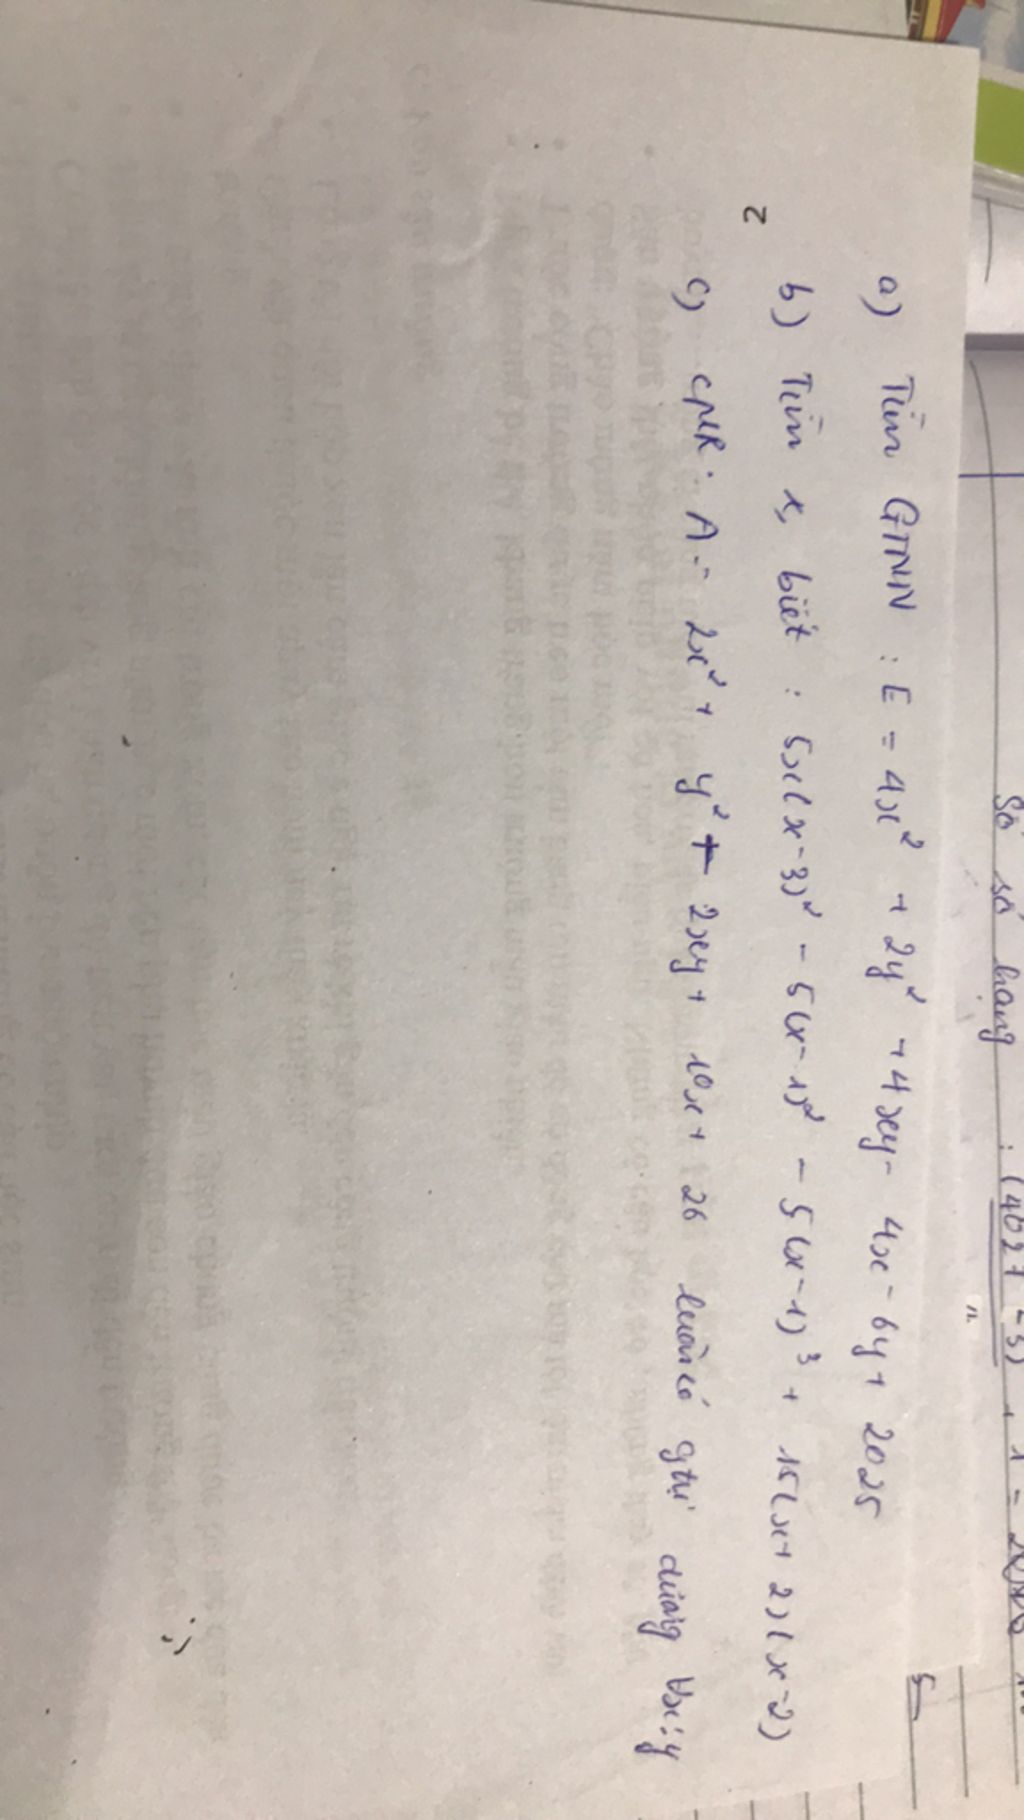 Số số hạng : (4027 - 3)
a) Tìm GTNN : E = 4x² + 2y² + 4xy - 4x - 6y + 2025
2
b) Tìm x, biết : 5x(x-3)² - 5(x-1)² - 5(x-1)³ + 15(x+2)(x-2)
c) CMR : A = 2x² + y² + 2xy + 10x + 26 luôn có gtrị dương ∀x;y